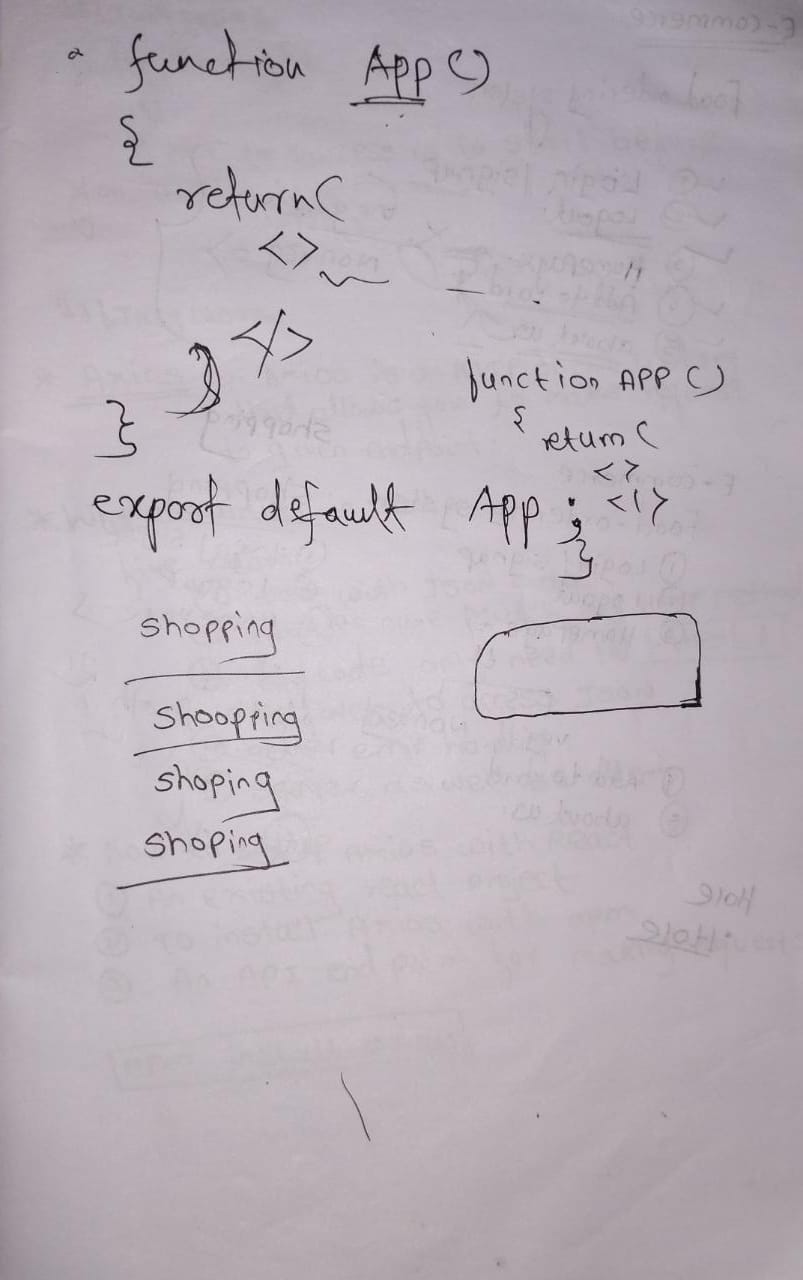 function App ()
{
return(
<>
</>
)
}
export default App ;
function APP ()
{
return (
<>
</>
}
shopping
shoopping
shoping
shoping